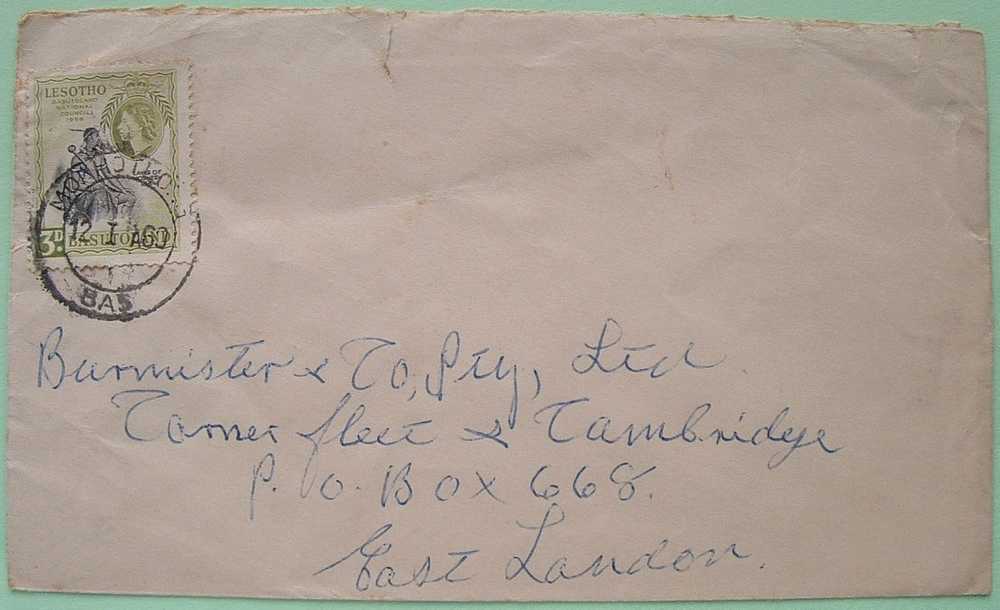 LESOTHO
BASUTOLAND
NATIONAL
COUNCIL
3D.
BASUTOLAND
12 I 60
BAS
Burmister & Co, Pty, Ltd.
Corner fleet & Cambridge
P. O. BOX 668.
East London.